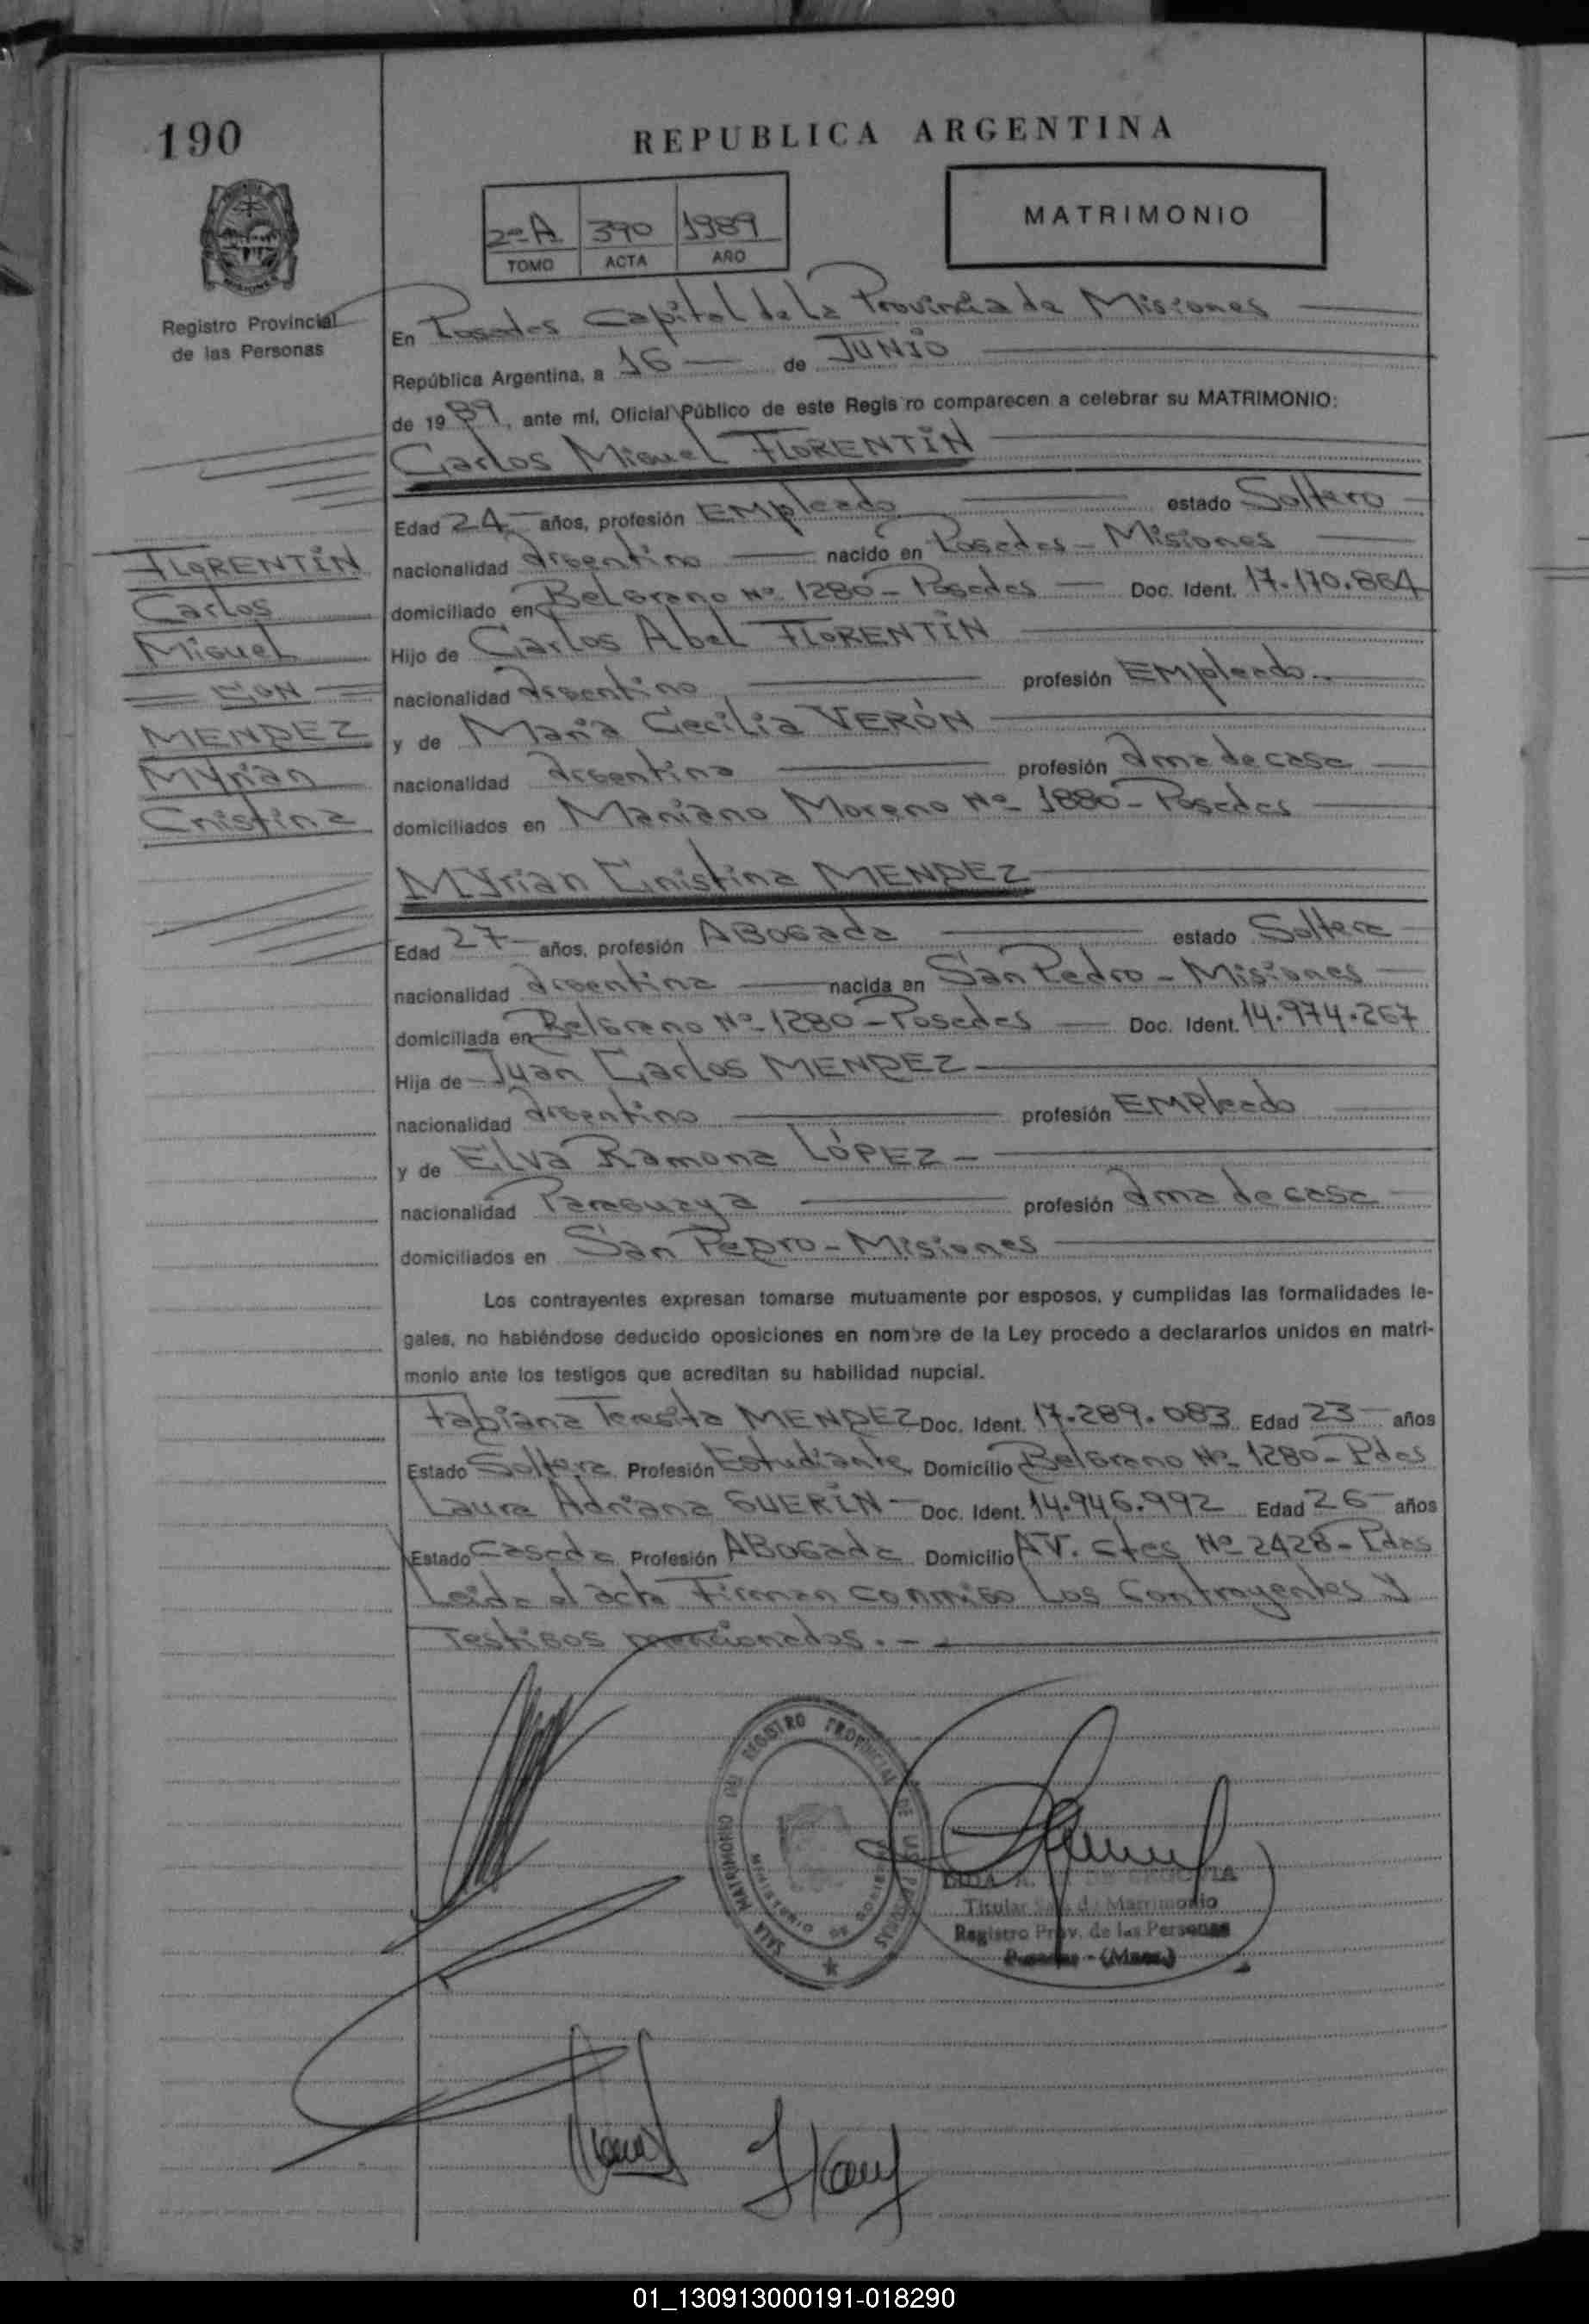 190
REPUBLICA ARGENTINA
MATRIMONIO
2º-A 390 1989
TOMO ACTA AÑO
Registro Provincial
de las Personas
En Posadas Capital de La Provincia de Misiones
República Argentina, a 16 de JUNIO
de 1989, ante mí, Oficial Público de este Regis ro comparecen a celebrar su MATRIMONIO:
Carlos Miguel FLORENTÍN
Edad 24 años, profesión EMpleado estado Soltero
nacionalidad Argentino nacido en Posadas - Misiones
domiciliado en Belgrano Nº 1280 - Posadas Doc. Ident. 17.170.864
Hijo de Carlos Abel FLORENTÍN
nacionalidad Argentino profesión EMpleado
y de María Cecilia VERÓN
nacionalidad Argentina profesión Ama de casa
domiciliados en Mariano Moreno Nº 1880 - Posadas
FLORENTÍN
Carlos
Miguel
= CON =
MENDEZ
Myrian
Cristina
Myrian Cristina MENDEZ
Edad 27 años, profesión ABogada estado Soltera
nacionalidad Argentina nacida en San Pedro - Misiones
domiciliada en Belgrano Nº 1280 - Posadas Doc. Ident. 14.974.267
Hija de Juan Carlos MENDEZ
nacionalidad Argentino profesión EMPleado
y de Elva Ramona LÓPEZ -
nacionalidad Paraguaya profesión Ama de casa
domiciliados en San Pedro - Misiones
Los contrayentes expresan tomarse mutuamente por esposos, y cumplidas las formalidades le-
gales, no habiéndose deducido oposiciones en nombre de la Ley procedo a declararlos unidos en matri-
monio ante los testigos que acreditan su habilidad nupcial.
Fabiana Teresita MENDEZ Doc. Ident. 17.289.083 Edad 23 años
Estado Soltera Profesión Estudiante Domicilio Belgrano Nº 1280 - Pdas
Laura Adriana GUERÍN - Doc. Ident. 14.946.992 Edad 26 años
Estado Casada Profesión ABogada Domicilio AV. Ctes Nº 2428 - Pdas
Leida el acta Firman conmigo Los Contrayentes y
Testigos mencionados. -
REGISTRO PROVINCIAL DE LAS PERSONAS
SALA MATRIMONIO
MINISTERIO DE GOBIERNO
Titular Sala de Matrimonio
Registro Prov. de las Personas
Posadas - (Mnes.)
01_130913000191-018290